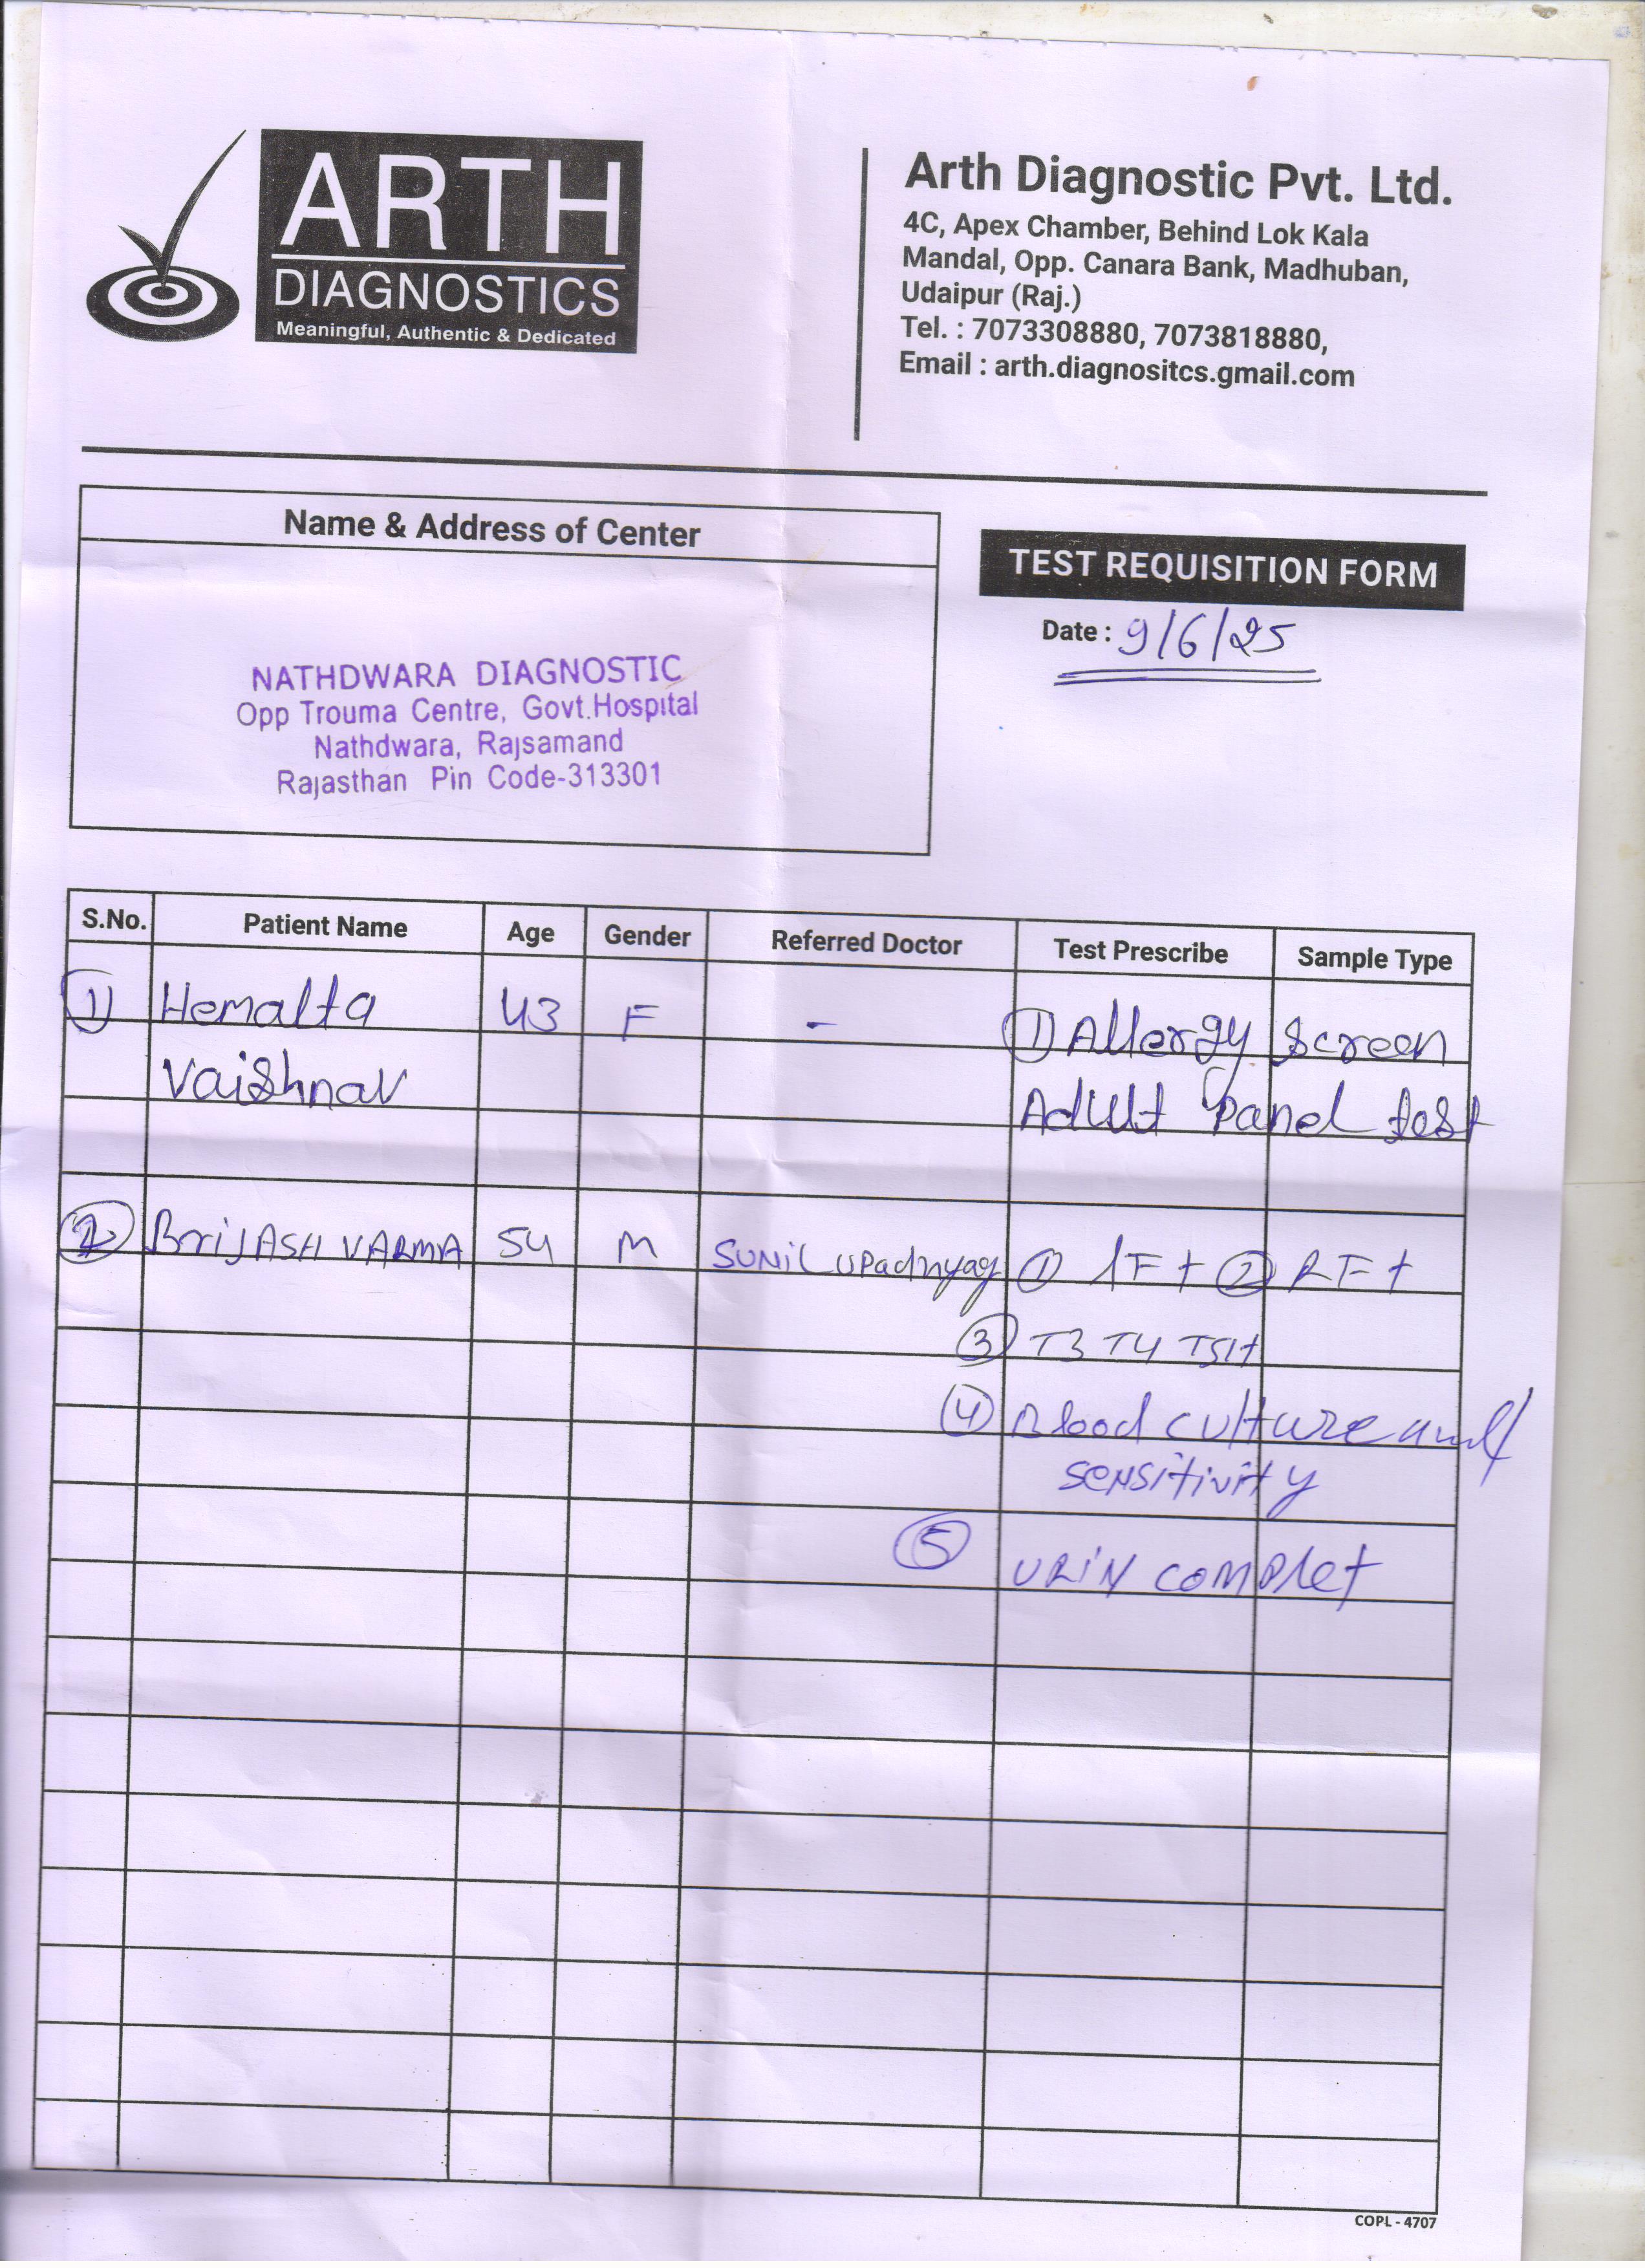 ARTH
DIAGNOSTICS
Meaningful, Authentic & Dedicated
Arth Diagnostic Pvt. Ltd.
4C, Apex Chamber, Behind Lok Kala
Mandal, Opp. Canara Bank, Madhuban,
Udaipur (Raj.)
Tel. : 7073308880, 7073818880,
Email : arth.diagnositcs.gmail.com
Name & Address of Center
NATHDWARA DIAGNOSTIC
Opp Trouma Centre, Govt.Hospital
Nathdwara, Rajsamand
Rajasthan Pin Code-313301
TEST REQUISITION FORM
Date : 9/6/25
S.No. Patient Name Age Gender Referred Doctor Test Prescribe Sample Type
1) Hemalta 43 F - 1) Allergy Screen
Vaishnav Adult Panel test
2 BriJASH VARMA 54 M SUNIL UPadhyay 1 LFt 2 RFt
3 T3 T4 TSH
4 Blood culture and
sensitivity
5 URIN complet
COPL - 4707